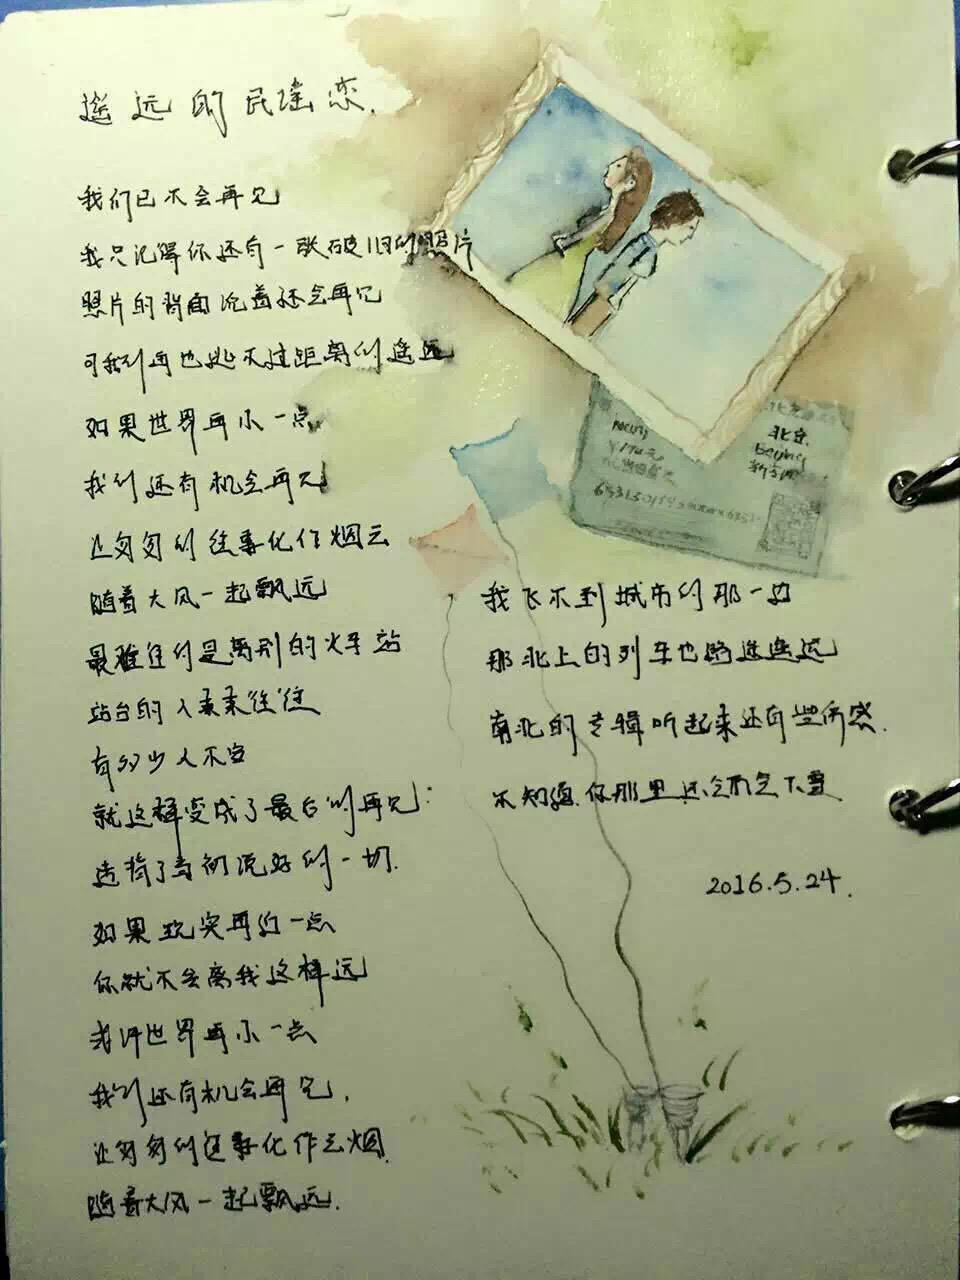 遥远的民谣恋.
我们已不会再见
我只记得你还有一张破旧的照片
照片的背面说着还会再见
可我们再也逃不过距离的遥远
如果世界再小一点
我们还有机会再见
让匆匆的往事化作烟云
随着大风一起飘远
最难过的是离别的火车站
站台的人来来往往
有多少人不安
就这样变成了最后的再见
违背了当初说好的一切.
如果现实再近一点
你就不会离我这样远
或许世界再小一点
我们还有机会再见.
让匆匆的往事化作云烟.
随着大风一起飘远.
北京
Beijing
我飞不到城市的那一边
那北上的列车也路途遥远
南北的专辑听起来还有些伤感.
不知道你那里还会不会下雪
2016.5.24.